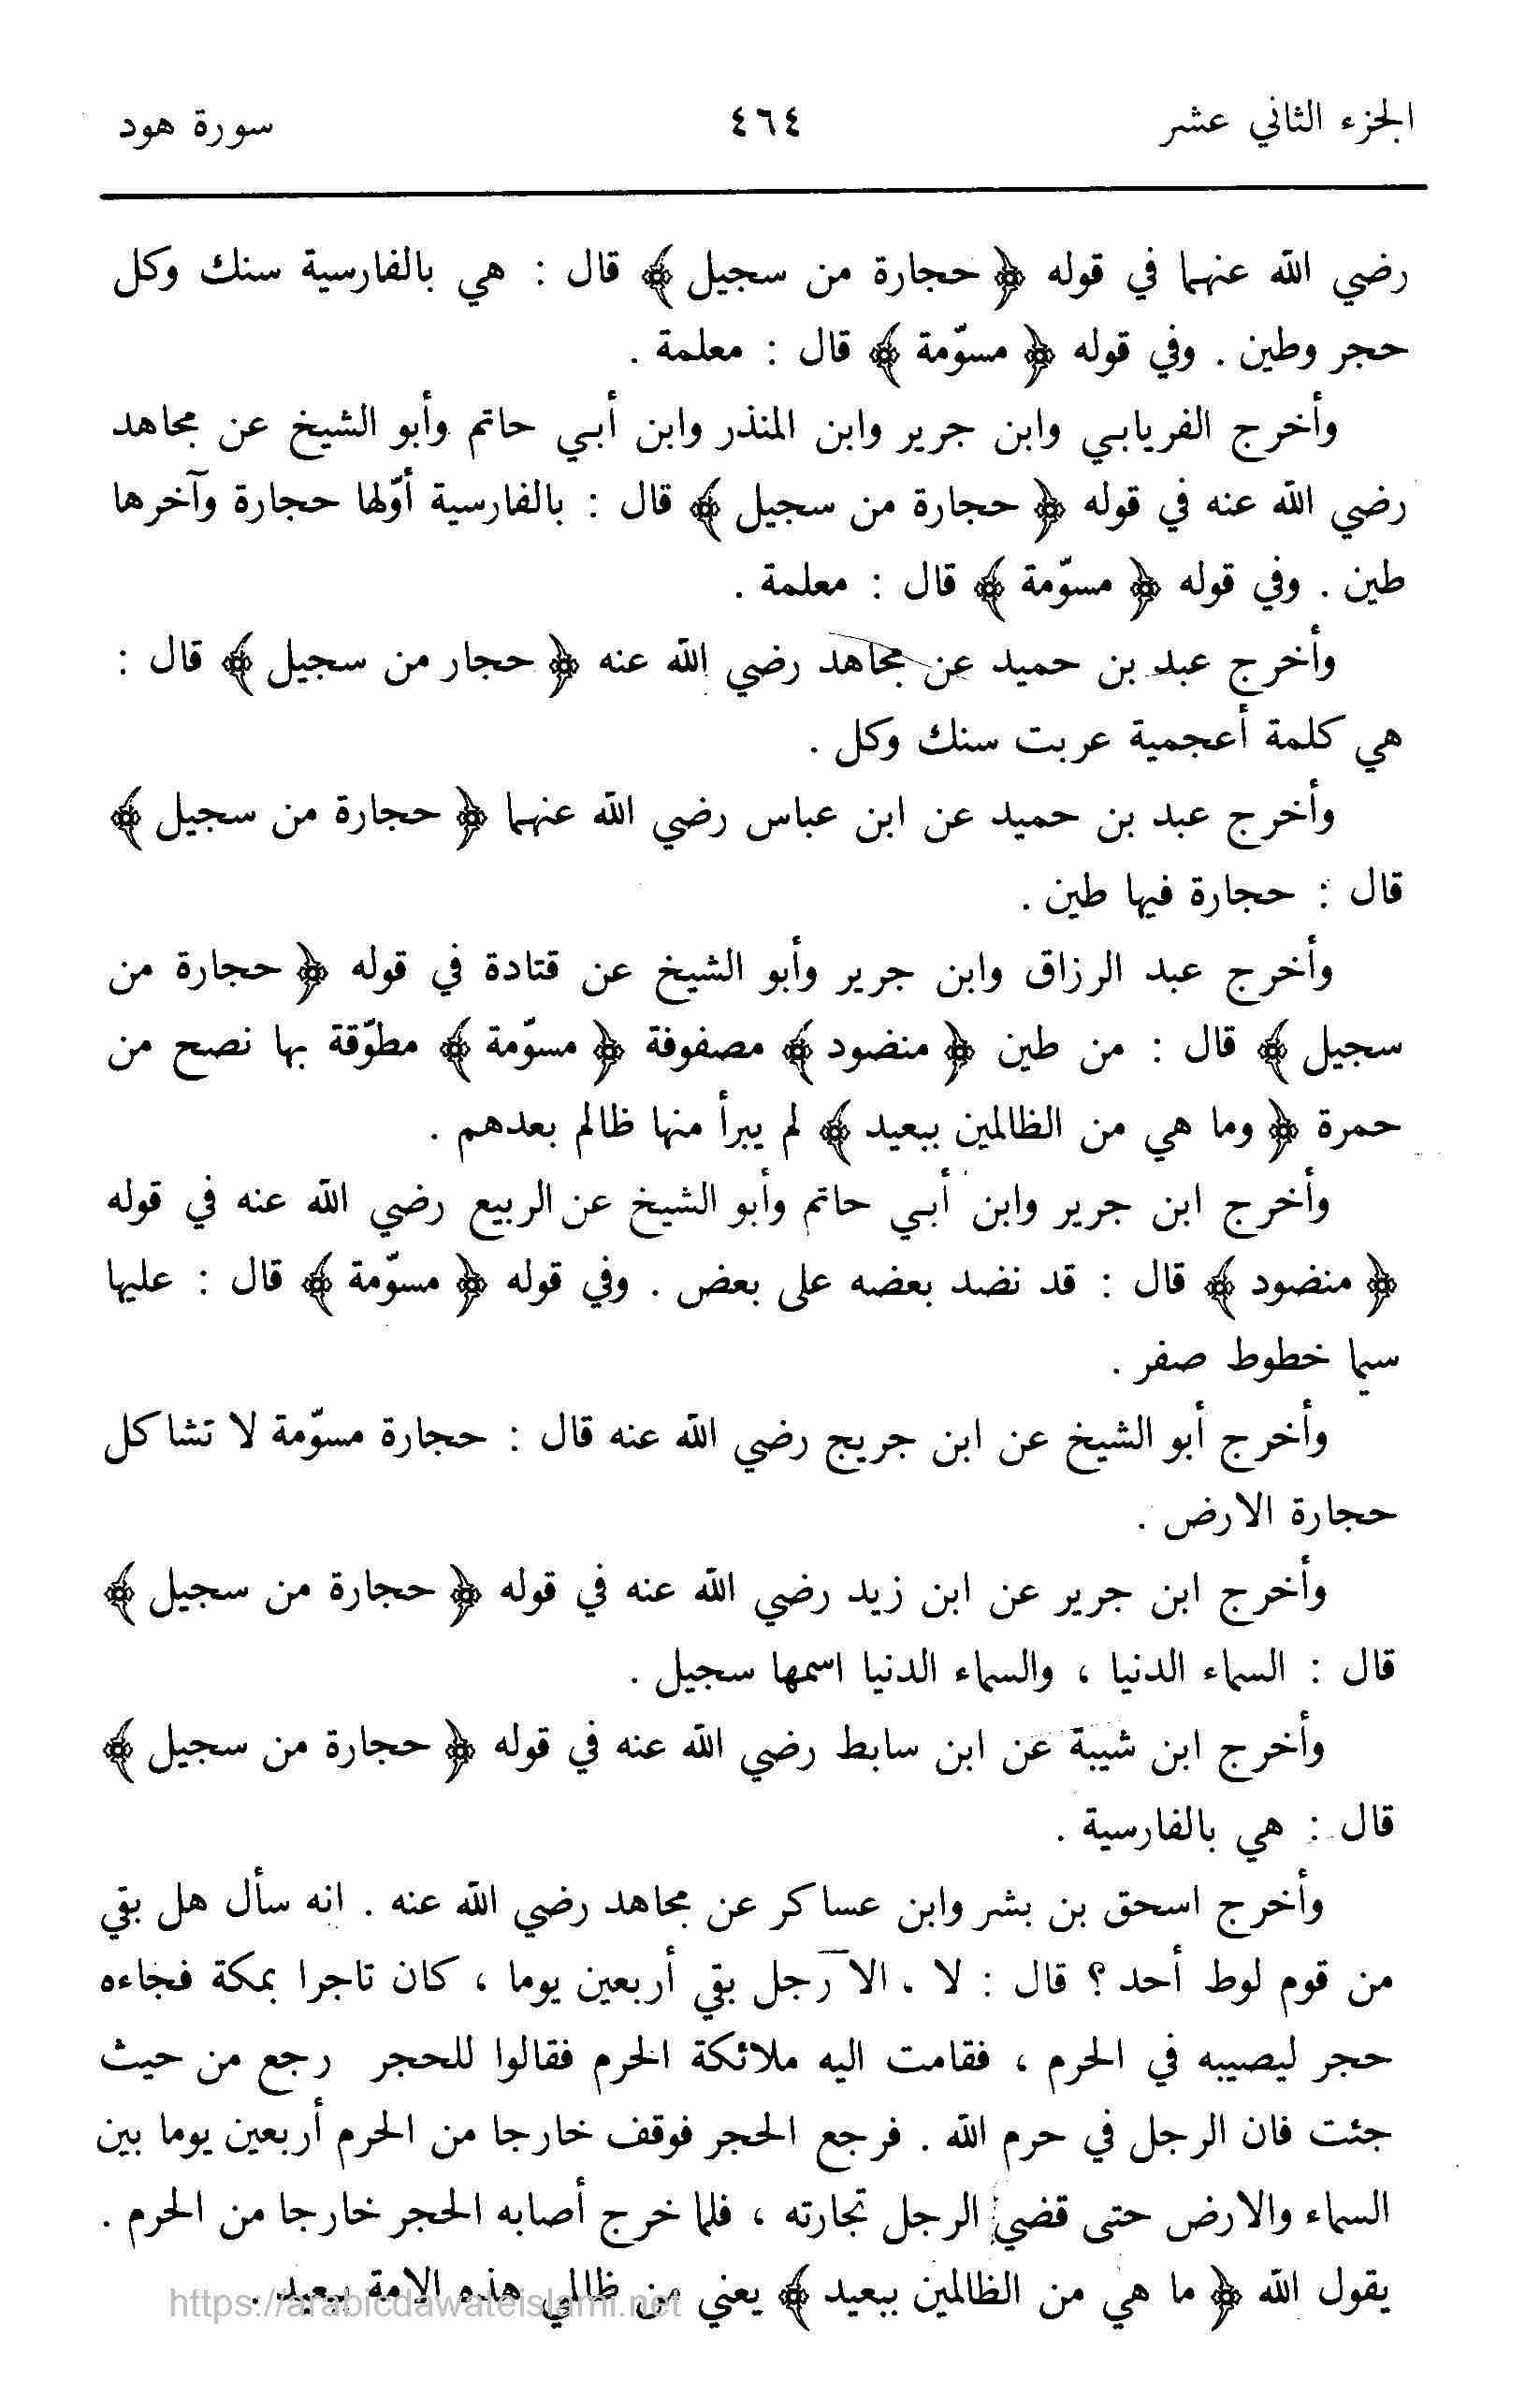 الجزء الثاني عشر ٤٦٤ سورة هود
رضي الله عنهما في قوله ﴿ حجارة من سجيل ﴾ قال : هي بالفارسية سنك وكل
حجر وطين . وفي قوله ﴿ مسوّمة ﴾ قال : معلمة .
وأخرج الفريابي وابن جرير وابن المنذر وابن أبي حاتم وأبو الشيخ عن مجاهد
رضي الله عنه في قوله ﴿ حجارة من سجيل ﴾ قال : بالفارسية أوّلها حجارة وآخرها
طين . وفي قوله ﴿ مسوّمة ﴾ قال : معلمة .
وأخرج عبد بن حميد عن مجاهد رضي الله عنه ﴿ حجار من سجيل ﴾ قال :
هي كلمة أعجمية عربت سنك وكل .
وأخرج عبد بن حميد عن ابن عباس رضي الله عنهما ﴿ حجارة من سجيل ﴾
قال : حجارة فيها طين .
وأخرج عبد الرزاق وابن جرير وأبو الشيخ عن قتادة في قوله ﴿ حجارة من
سجيل ﴾ قال : من طين ﴿ منضود ﴾ مصفوفة ﴿ مسوّمة ﴾ مطوّقة بها نصح من
حمرة ﴿ وما هي من الظالمين ببعيد ﴾ لم يبرأ منها ظالم بعدهم .
وأخرج ابن جرير وابن أبي حاتم وأبو الشيخ عن الربيع رضي الله عنه في قوله
﴿ منضود ﴾ قال : قد نضد بعضه على بعض . وفي قوله ﴿ مسوّمة ﴾ قال : عليها
سيما خطوط صفر .
وأخرج أبو الشيخ عن ابن جريج رضي الله عنه قال : حجارة مسوّمة لا تشاكل
حجارة الارض .
وأخرج ابن جرير عن ابن زيد رضي الله عنه في قوله ﴿ حجارة من سجيل ﴾
قال : السماء الدنيا ، والسماء الدنيا اسمها سجيل .
وأخرج ابن شيبة عن ابن سابط رضي الله عنه في قوله ﴿ حجارة من سجيل ﴾
قال : هي بالفارسية .
وأخرج اسحق بن بشر وابن عساكر عن مجاهد رضي الله عنه . انه سأل هل بقي
من قوم لوط أحد ؟ قال : لا . الا رجل بقي أربعين يوما ، كان تاجرا بمكة فجاءه
حجر ليصيبه في الحرم ، فقامت اليه ملائكة الحرم فقالوا للحجر رجع من حيث
جئت فان الرجل في حرم الله . فرجع الحجر فوقف خارجا من الحرم أربعين يوما بين
السماء والارض حتى قضي الرجل تجارته ، فلما خرج أصابه الحجر خارجا من الحرم .
يقول الله ﴿ ما هي من الظالمين ببعيد ﴾ يعني من ظالمي هذه الامة ببعيد .
https://arabicdawateislami.net